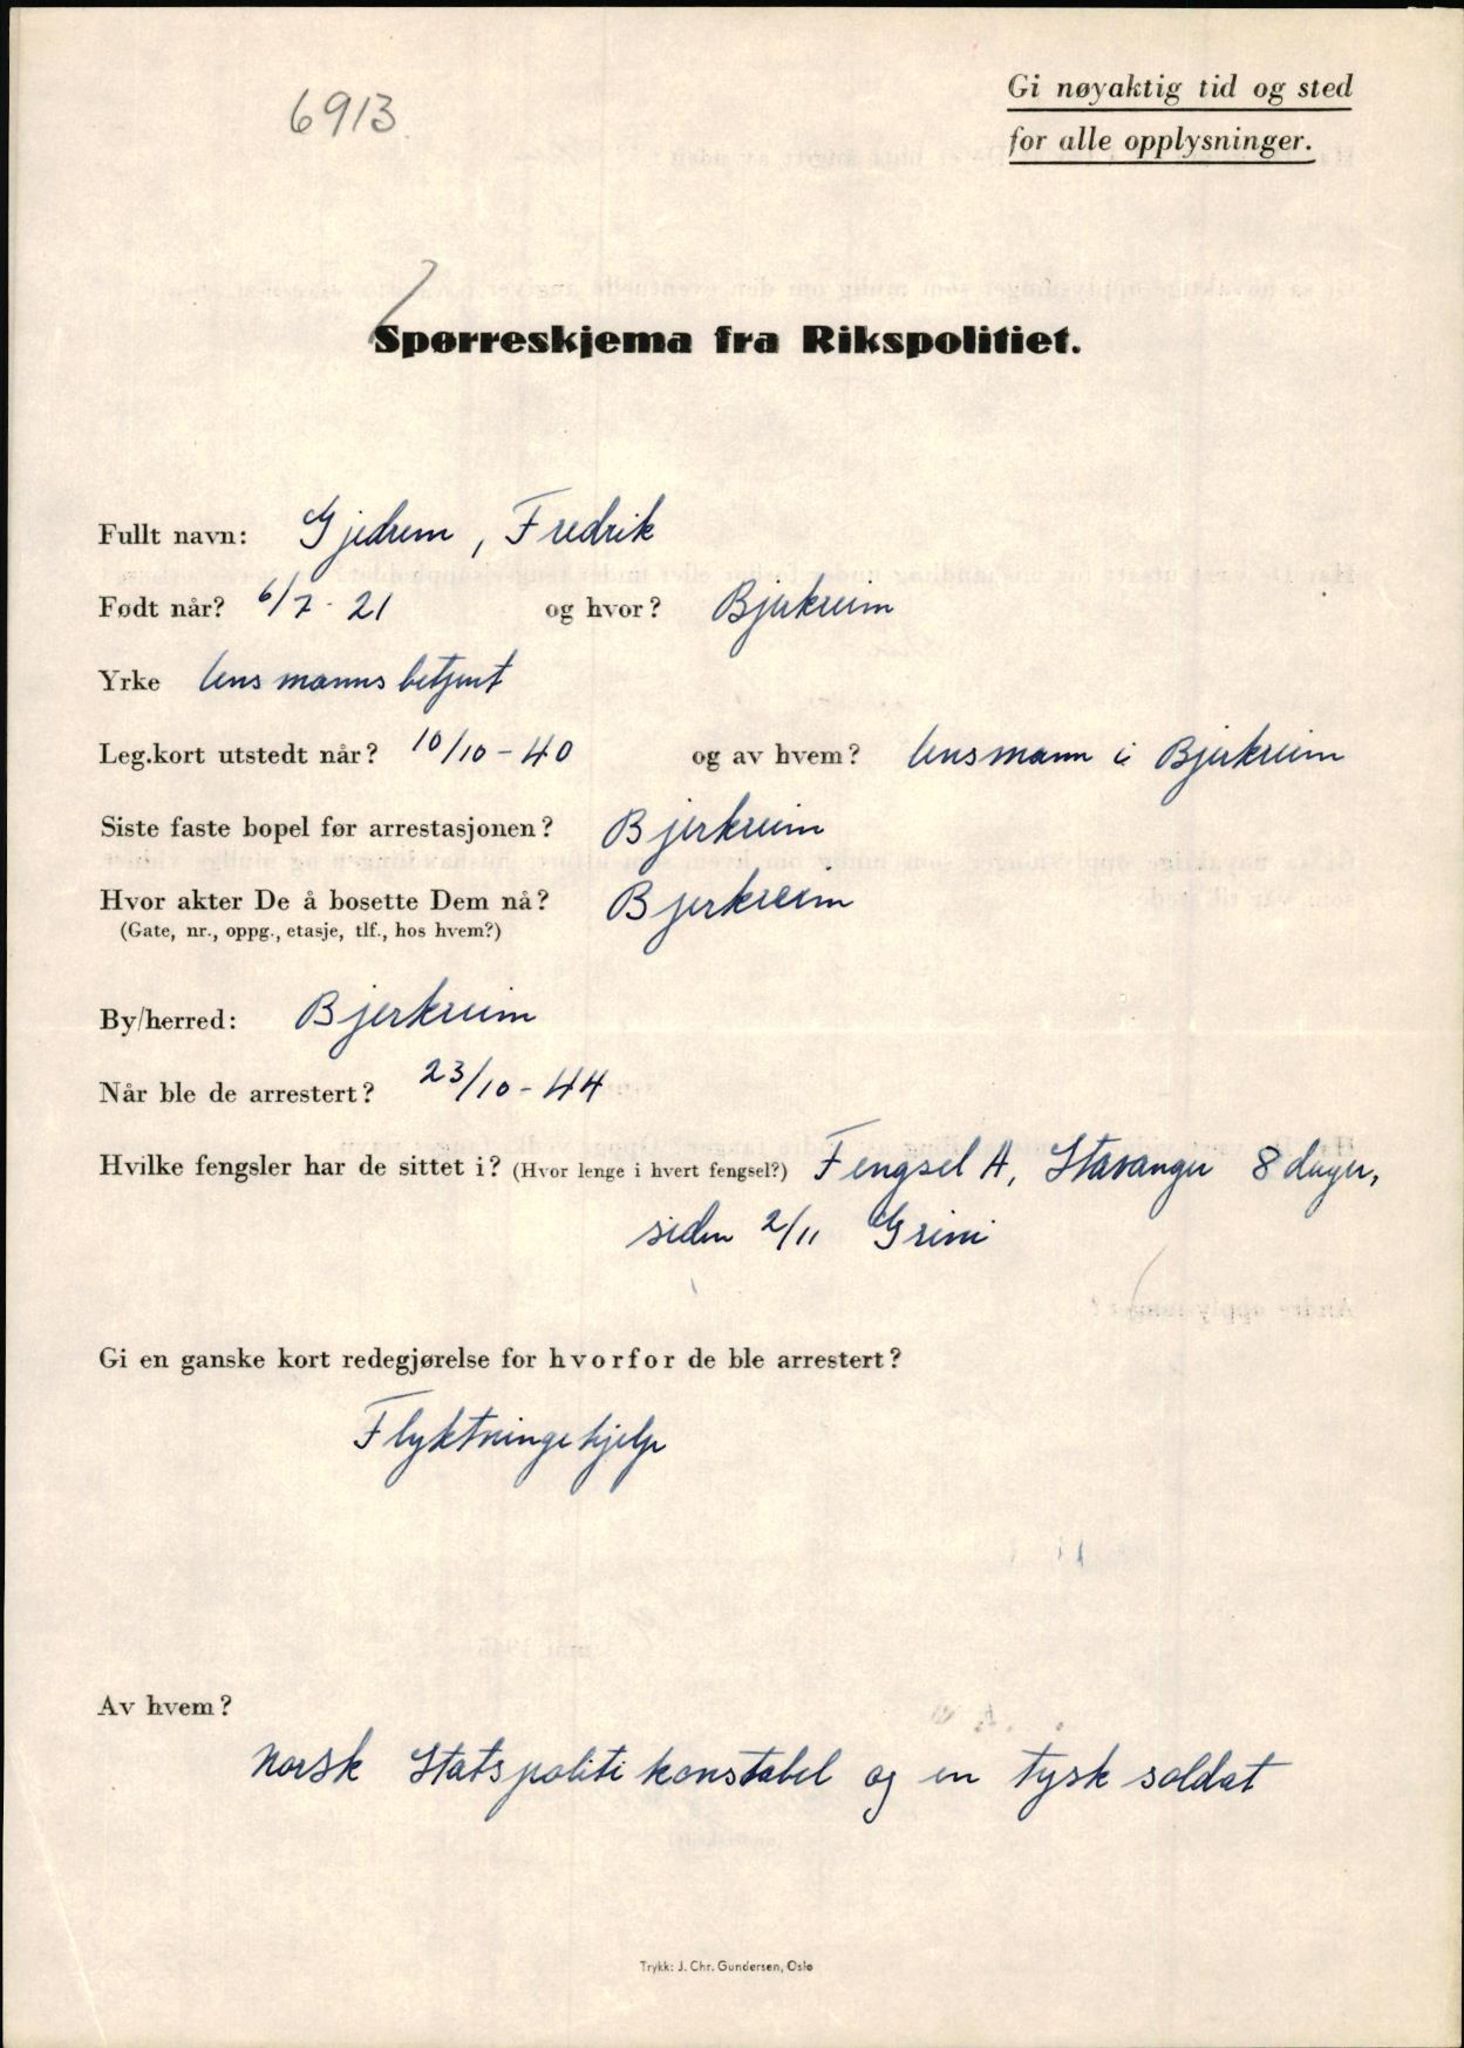 6913
Gi nøyaktig tid og sted
for alle opplysninger.
Spørreskjema fra Rikspolitiet.
Fullt navn: Gjedrem, Fredrik
Født når? 6/7-21 og hvor? Bjerkreim
Yrke lensmannsbetjent
Leg.kort utstedt når? 10/10-40 og av hvem? lensmann i Bjerkreim
Siste faste bopel før arrestasjonen? Bjerkreim
Hvor akter De å bosette Dem nå? Bjerkreim
(Gate, nr., oppg., etasje, tlf., hos hvem?)
By/herred: Bjerkreim
Når ble de arrestert? 23/10-44
Hvilke fengsler har de sittet i? (Hvor lenge i hvert fengsel?) Fengsel A, Stavanger 8 dager,
siden 2/11 Grini
Gi en ganske kort redegjørelse for hvorfor de ble arrestert?
Flyktningehjelp
Av hvem?
norsk Statspoliti konstabel og en tysk soldat
Trykk: J. Chr. Gundersen, Oslo